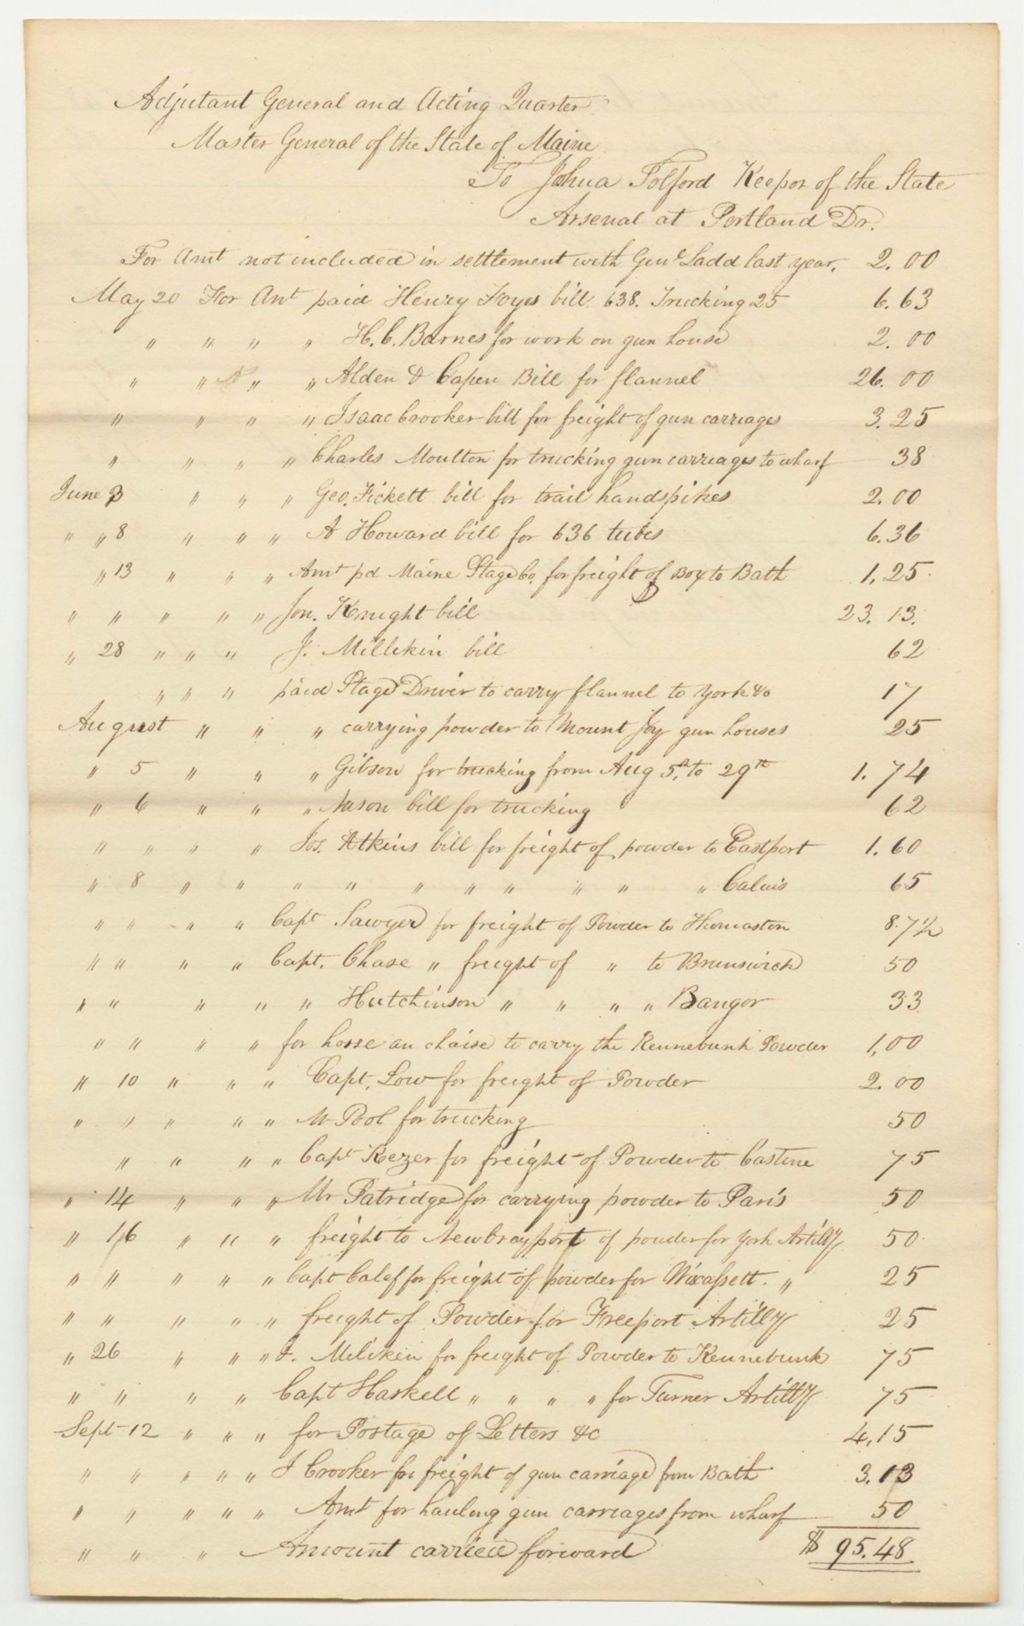 Adjutant General and Acting Quarter
Master General of the State of Maine
To Johua Tolford Keepor of the State
Arsenal at Portland Dr.
For Amt not included in settlement with Genl Ladd last year. 2.00
May 20 For Amt paid Henry Noyes bill 638. Trucking 25 6.63
" " " " H. C. Barnes for work on gun house 2.00
" " " " Alden & Capen Bill for flannel 26.00
" " " " Isaac Crooker bill for freight of gun carriages 3.25
" " " " Charles Moulton for trucking gun carriages to wharf 38
June 3 " " " Geo. Fickett bill for trail handspikes 2.00
" " 8 " " " A Howard bill for 636 tubes 6.36
" 13 " " " Amt pd Maine Stage Co. for freight of Box to Bath 1.25
" " " " " Jon. Knight bill 23.13.
" 28 " " " J. Millikin bill 62
" " " paid Stage Driver to carry flannel to York &c 17
August " " " carrying powder to Mount Joy gun houses 25
" 5 " " " Gibson for trucking from Aug 5th to 29th 1.74
" 6 " " " Nason bill for trucking 62
" " " " Jos. Atkins bill for freight of powder to Eastport 1.60
" 8 " " " " " " " " " " Calais 65
" " " " Capt Sawyer for freight of Powder to Thomaston 87 1/2
" " " " Capt. Chase " freight of " to Brunswick 50
" " " " " Hutchinson " " " " Bangor 33
" " " " for horse an chaise to carry the Kennebunk Powder 1,00
" 10 " " " Capt. Low for freight of Powder 2.00
" " " " " M Pool for trucking 50
" " " " Capt Kezer for freight of Powder to Castine 75
" 14 " " " Mr Patridge for carrying powder to Paris 50
" 16 " " " freight to Newbrayport of powder for York Artilly 50
" " " " " Capt Calef for freight of powder for Wixassett. " 25
" " " " " freight of Powder for Freeport Artilly 25
" 26 " " " J. Miliken for freight of Powder to Kennebunk 75
" " " " Capt Haskell " " " " for Turner Artilly 75
Sept 12 " " " for Postage of Letters &c 4,15
" " " " " J Crooker for freight of gun carriage from Bath 3.13
" " " " " Amt for hauling gun carriages from wharf 50
" " " Amount carried forward $ 95.48